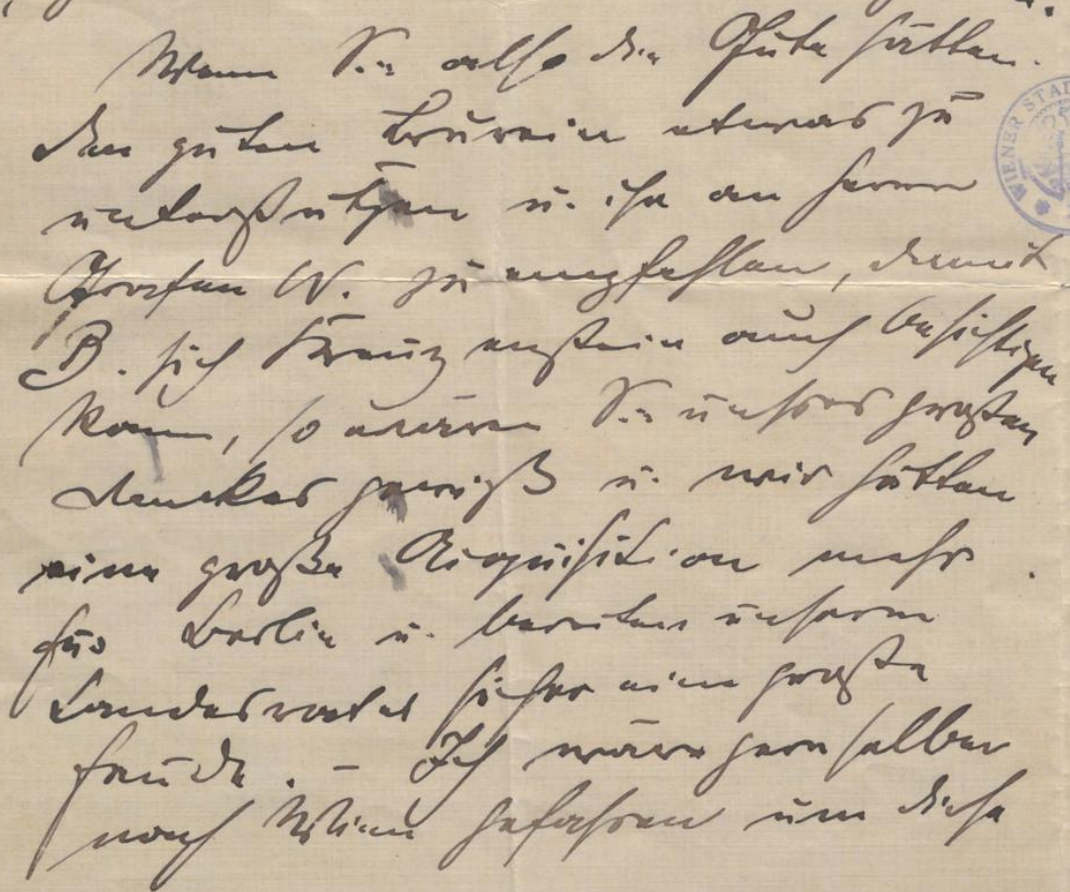 Wenn Sie also die Güte hätten
den guten Bruwein etwas zu
unterstützen u. ihn an Herrn
Grafen W. zu empfehlen, damit
B. sich Kreuzenstein auch besichtigen
kann, so wären Sie unseres großen
Dankes gewiß u. wir hätten
eine große Acquisition mehr
für Berlin u. bereiten unserm
Landesvater sicher eine große
Freude. – Ich wäre gern selber
nach Wien gefahren um diese
WIENER STA